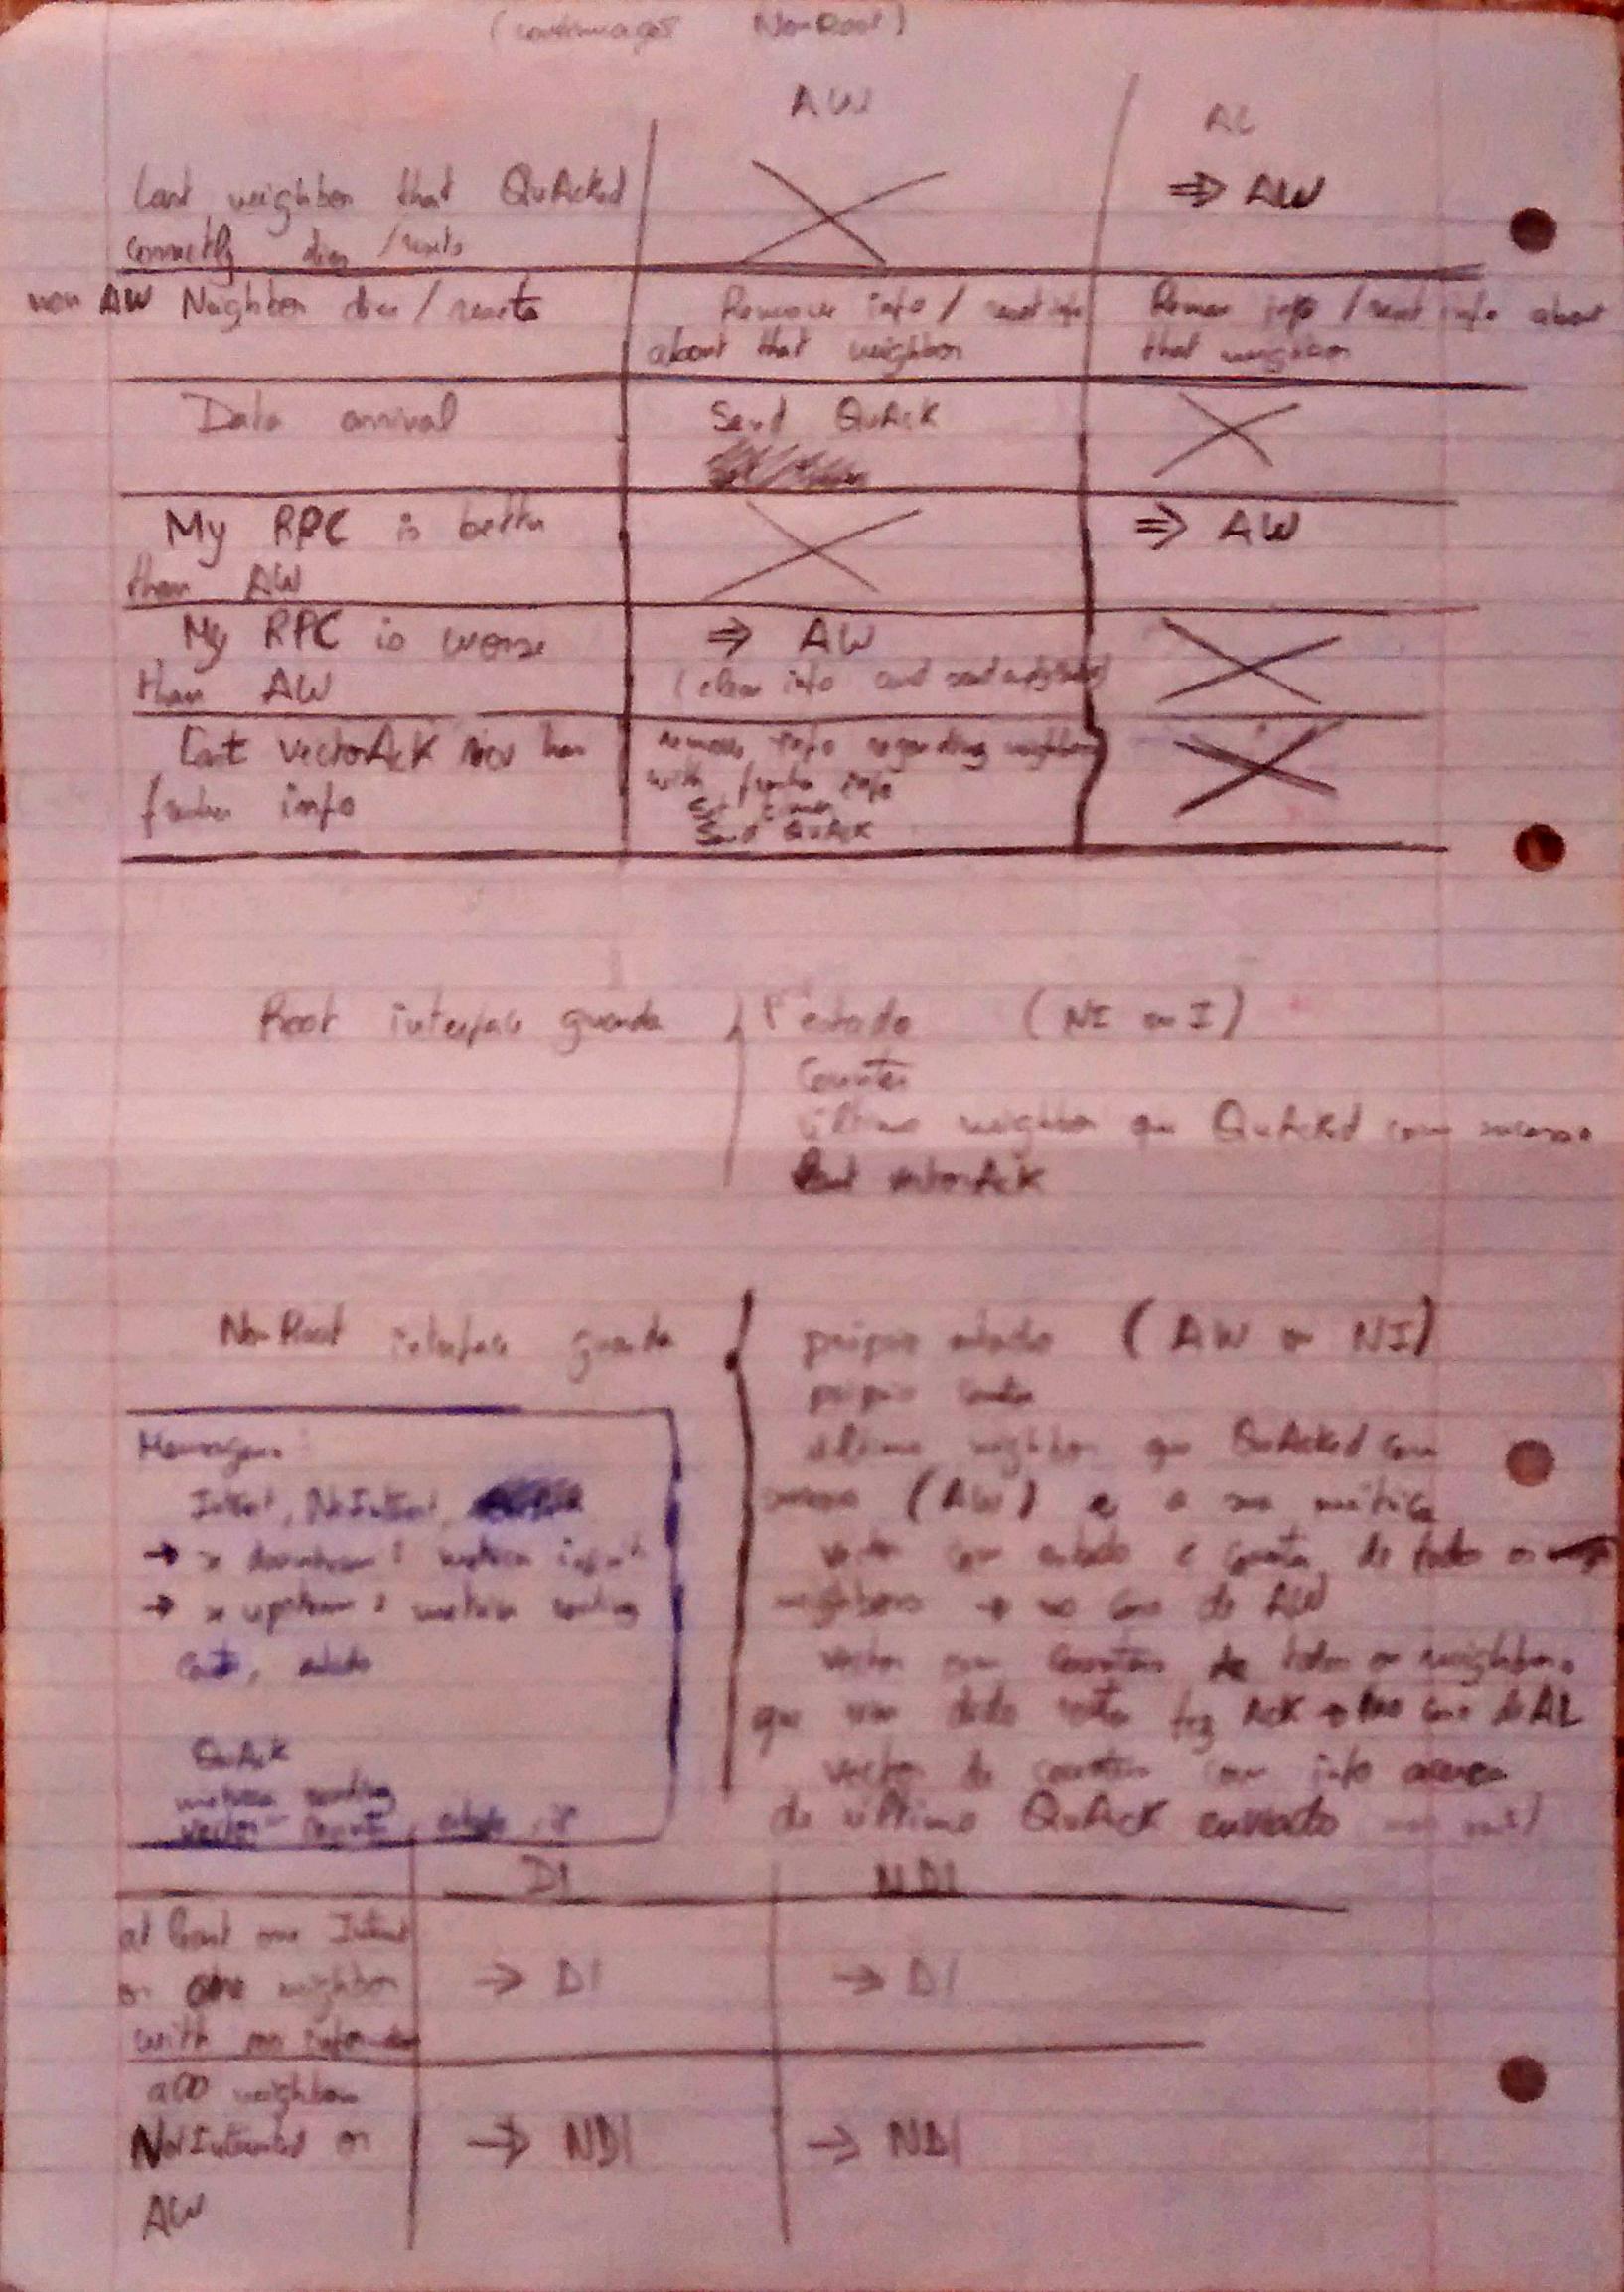 (continuação NonRoot)
AW
AL
Last neighbor that QuAcked
⇒ AW
correctly dies / resets
non AW Neighbor dies / resets
Remove info / reset info
about that neighbor
Remove info / reset info about
that neighbor
Data arrival
Send QuAck
My RPC is better
than AW
⇒ AW
My RPC is worse
than AW
⇒ AW
(clear info and
Last VectorAck now has
info
remove info regarding neighbor
with info
Set timer
Send QuAck
Root interface guarda
estado (NI ou I)
Counter
último neighbor que QuAcked com sucesso
last vectorAck
NonRoot interface guarda
próprio estado (AW ou NI)
próprio counter
último neighbor que QuAcked com
sucesso (AW) e a sua métrica
vector com estado e counter de todos os
neighbors → no caso de AW
vector com counters de todos os neighbors
que fez Ack → no caso de AL
vector de counters com info acerca
do último QuAck
Mensagens
Interest, NoInterest,
→ downstream: metrica
→ upstream: metrica routing
counter, estado
QuAck
metrica routing
vector counter, estado, ip
DI
NDI
at least one Interest
or one neighbor
with no info
→ DI
→ DI
all neighbors
NotInterested or
AW
→ NDI
→ NDI